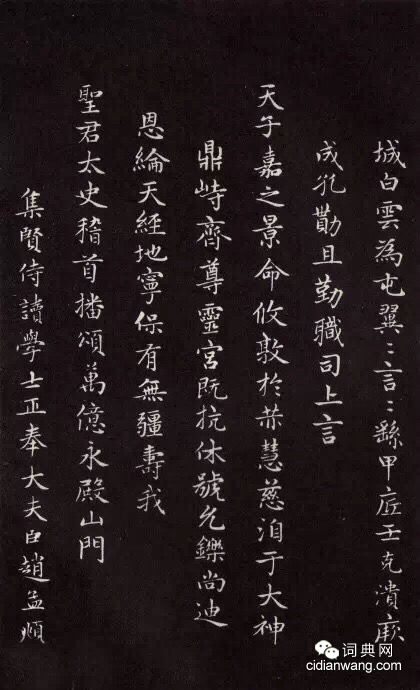 城白雲為屯翼〻言〻繇甲庀壬克潰厥
成孔勛且勤職司上言
天子嘉之景命攸敦於赤慧慈洎于大神
鼎峙齊尊靈宮既抗休號允鑠尚迪
恩綸天經地寧保有無疆壽我
聖君太史稽首播頌萬億永殿山門
集賢侍讀學士正奉大夫臣趙孟頫
词典网
cidianwang.com